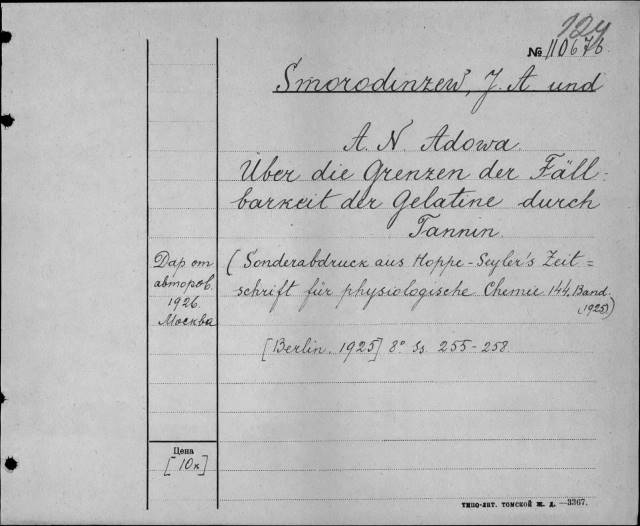 124
№ 110676.
Smorodinzew, J. A. und
A. N. Adowa.
Über die Grenzen der Fäll-
barkeit der Gelatine durch
Tannin.
(Sonderabdruck aus Hoppe-Seyler's Zeit=
schrift für physiologische Chemie 144, Band.
(1925))
[Berlin. 1925] 8° Ss 255-258.
Дар от
авторов.
1926.
Москва
Цена
[10к]
ТИПО-ЛИТ. ТОМСКОЙ Ж. Д. —3367.